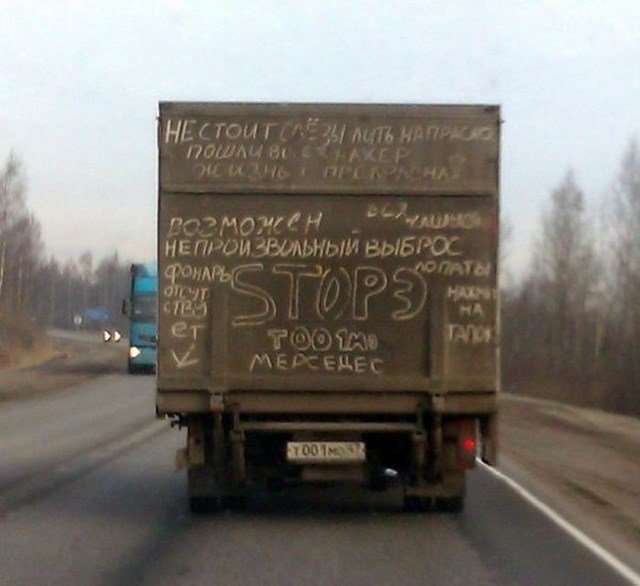 НЕ СТОИТ СЛЁЗЫ ЛИТЬ НАПРАСНО
ПОШЛИ ВСЕХ НАХЕР
ЖИЗНЬ ПРЕКРАСНА
ВОЗМОЖЕН
НЕПРОИЗВОЛЬНЫЙ ВЫБРОС
ЛОПАТЫ
ФОНАРЬ
ОТСУТ
СТВУ
ЕТ
STOPЭ
НА
ТАПОК
Т001МО
МЕРСЕДЕС
Т001МО 47